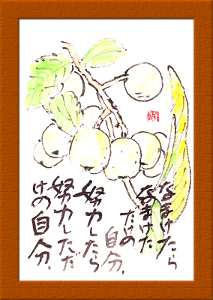 なまけたら
なまけた
だけの
自分、
努力したら
努力しただ
けの自分、